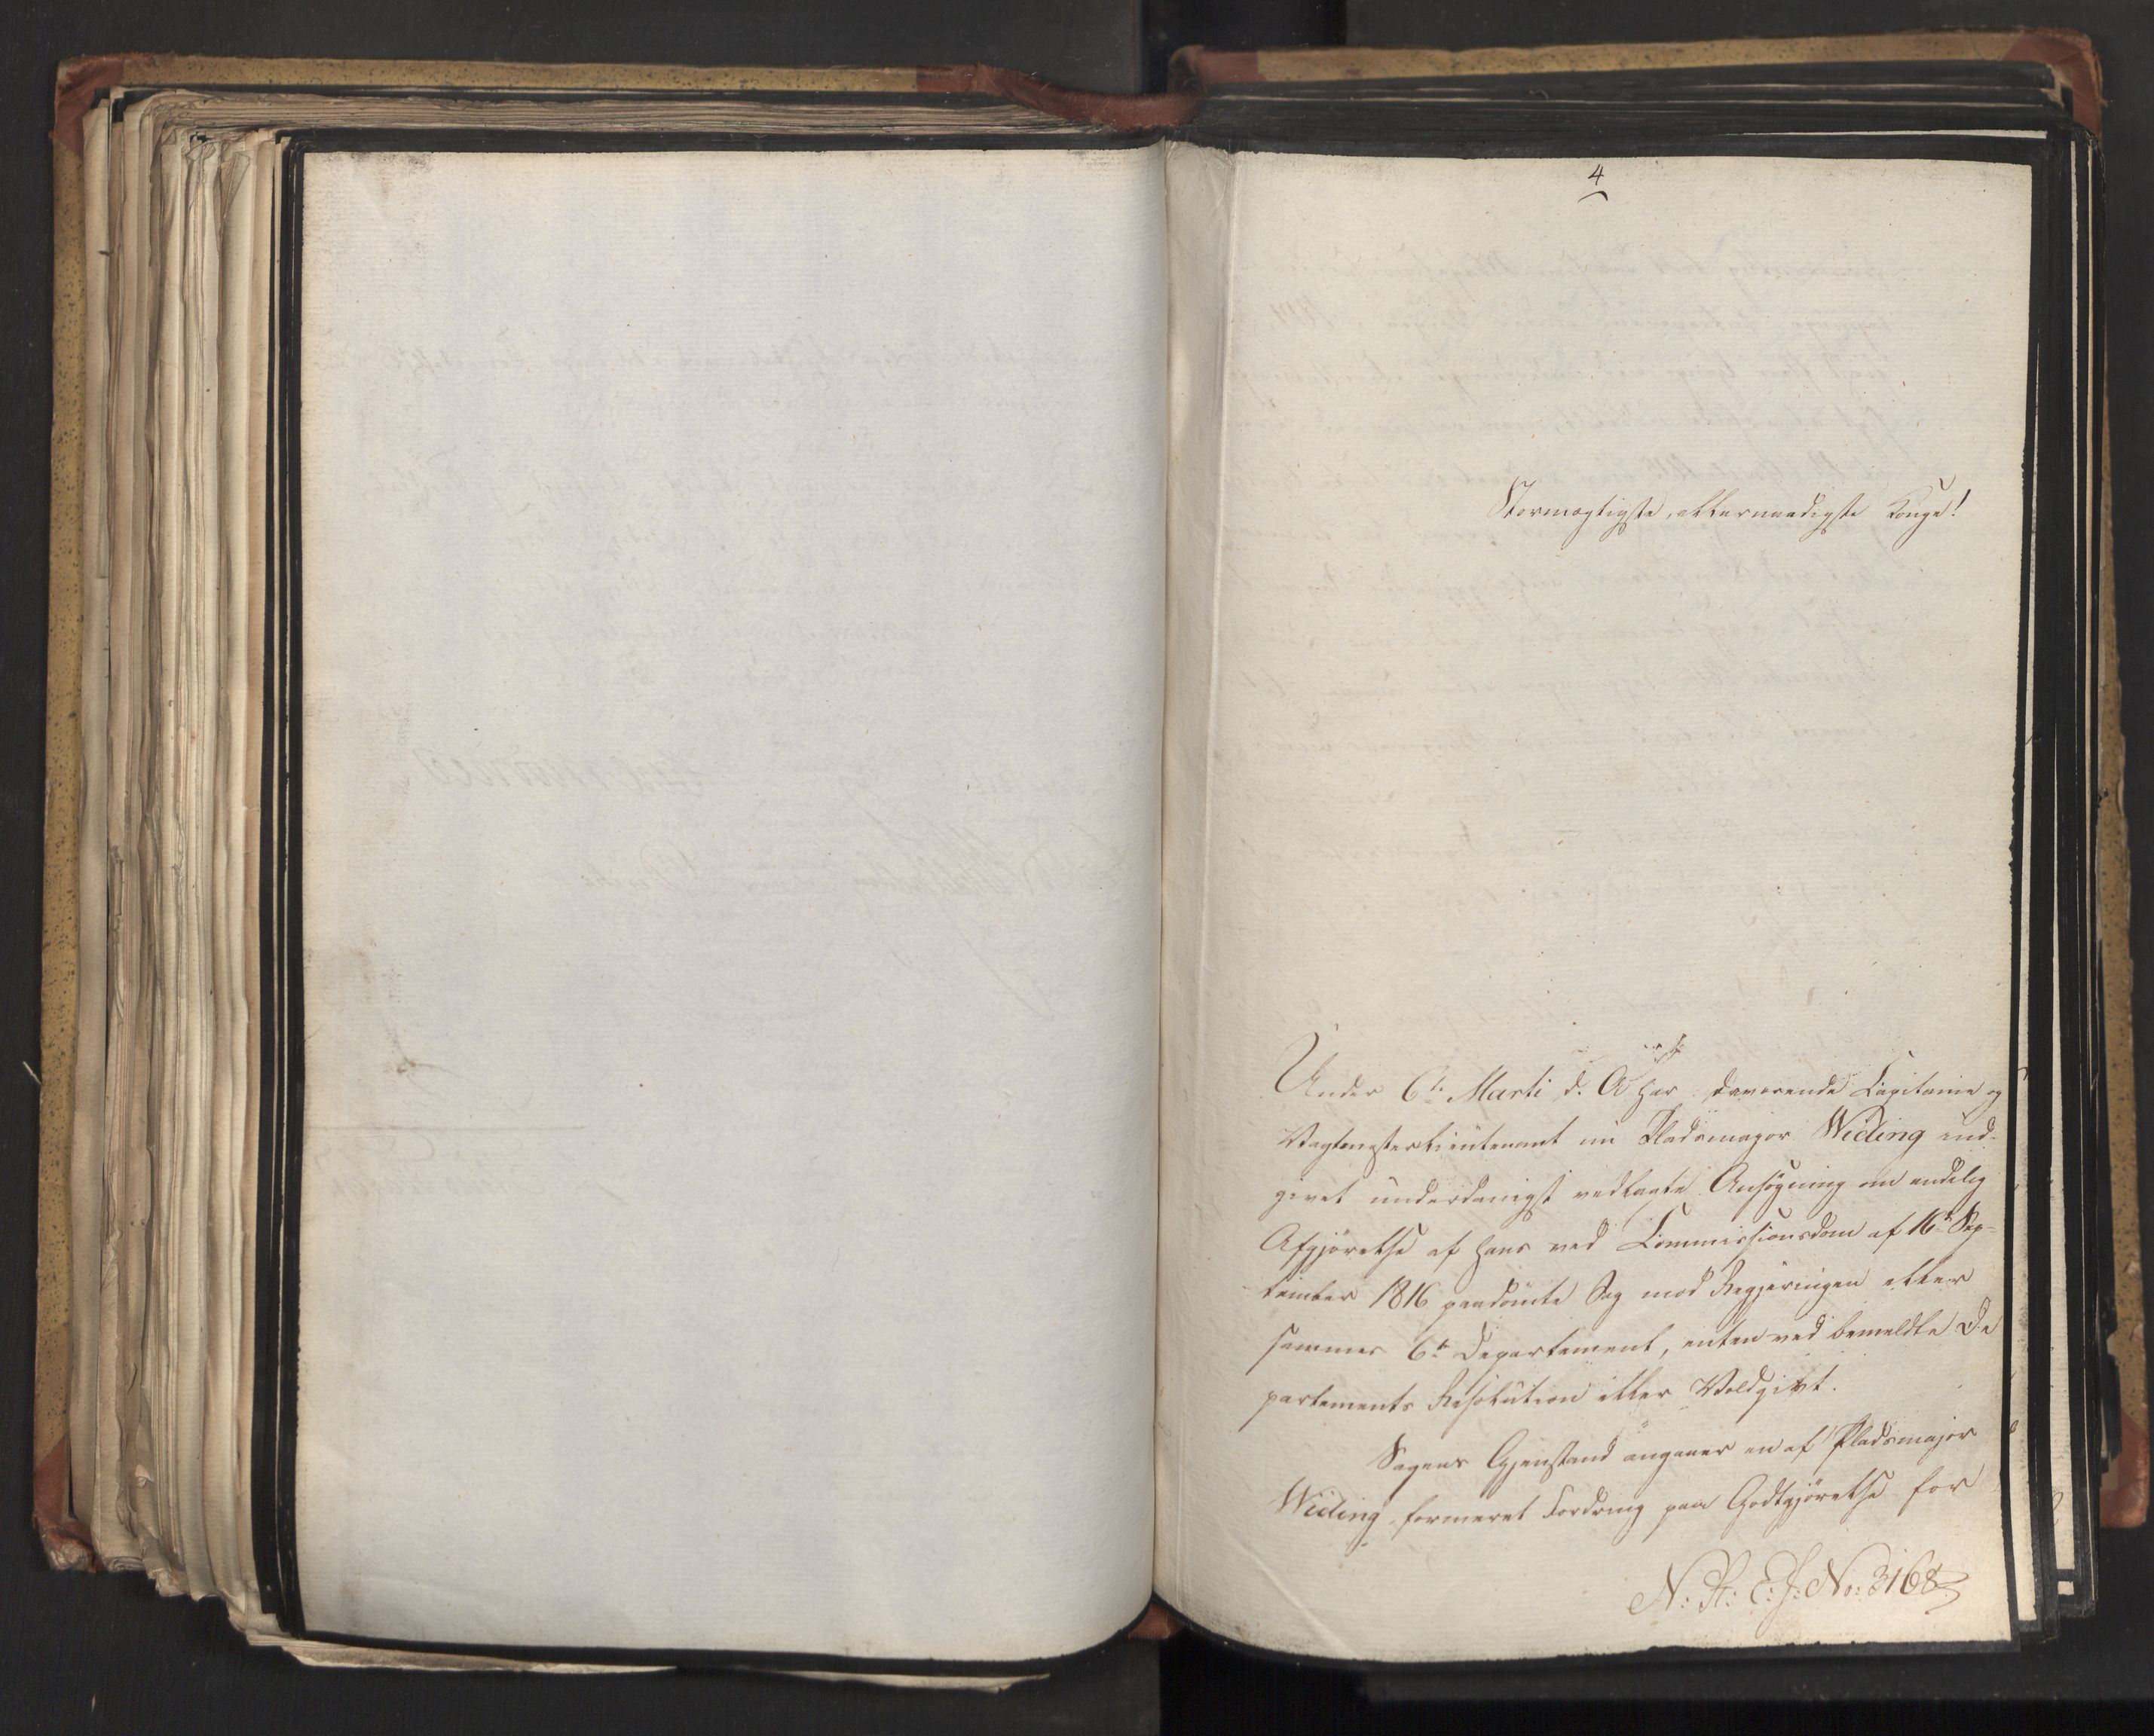 4
Stormægtigste, allernaadigste Konge!
Under 6te Marti d. A. har daværende Capitaine og
Vagtmesterlieutenant nu Pladsmajor Wieding ind-
givet underdanigst vedlagte Ansøgning om endelig
Afgjørelse af hans ved Commissionsdom af 16de Sep-
tember 1816 paadømte Sag mod Regjeringen eller
sammes 6te Departement, enten ved bemeldte De
partements Resolution eller Voldgivt.
Sagens Gjenstand angaaer en af Pladsmajor
Wieding formeret Fordring paa Godtgjørelse for
N: R: E: J: No: 3168